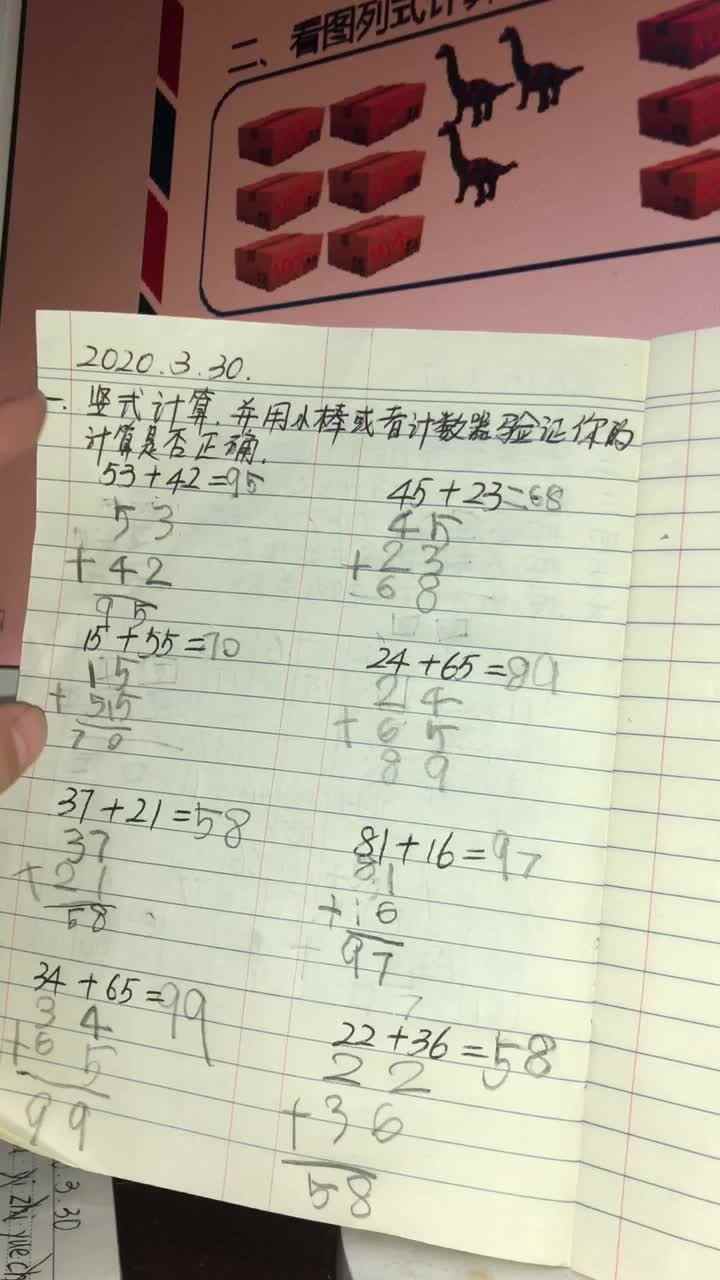 二、看图列式计算
2020.3.30.
一. 竖式计算,并用小棒或者计数器验证你的
计算是否正确.
53+42=95
53
+42
95
45+23=68
45
+23
68
15+55=70
15
+515
70
24+65=89
24
+65
89
37+21=58
37
+21
58
81+16=97
81
+16
97
34+65=99
34
+65
99
22+36=58
22
+36
58
3.30
yi zhi yue